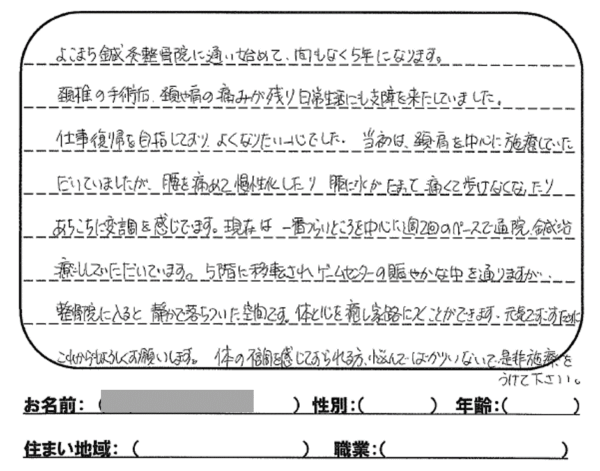 よこまち鍼灸整骨院に通い始めて、間もなく5年になります。
頚椎の手術后、頚や肩の痛みが残り日常生活にも支障を来たしていました。
仕事復帰を目指しており、よくなりたい一心でした。当初は、頚肩を中心に施療していた
だいていましたが、腰を痛めて慢性化したり 膝に水がたまって痛くて歩けなくなったり
あちらこちらに変調を感じてます。現在は 一番つらいところを中心に週2回のペースで通院、鍼治
療していただいています。5階に移転されゲームセンターの賑やかな中を通りますが、
整骨院に入ると 静かで落ちついた空間です。体と心を癒し家路につくことができます、元気ですごすために
これからもよろしくお願いします。 体の不調を感じておられる方、悩んでばかりいないで、是非施療を
うけて下さい。
お名前：（ ） 性別：（ ） 年齢：（ ）
住まい地域：（ ） 職業：（ ）